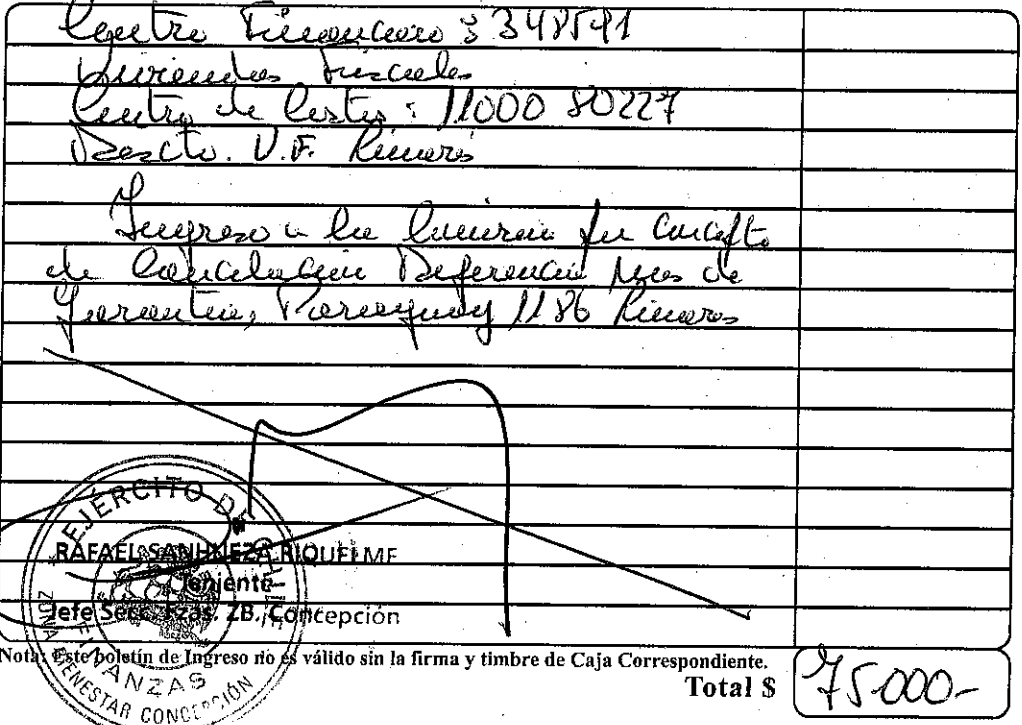 Centro Financiero : 348591
Viviendas Fiscales
Centro de Costos : 11000 80227
Descto. V.F. Linares
Ingreso a la por Concepto
de Cancelación Diferencia Mes de
Garantía, Paraguay 1186 Linares
EJÉRCITO DE CHILE
RAFAEL SANHUEZA RIQUELME
Teniente
Jefe Secc. Fzas. ZB. Concepción
ZONA BIENESTAR CONCEPCIÓN
FINANZAS
Nota: Este boletín de Ingreso no es válido sin la firma y timbre de Caja Correspondiente.
Total $ 75.000-